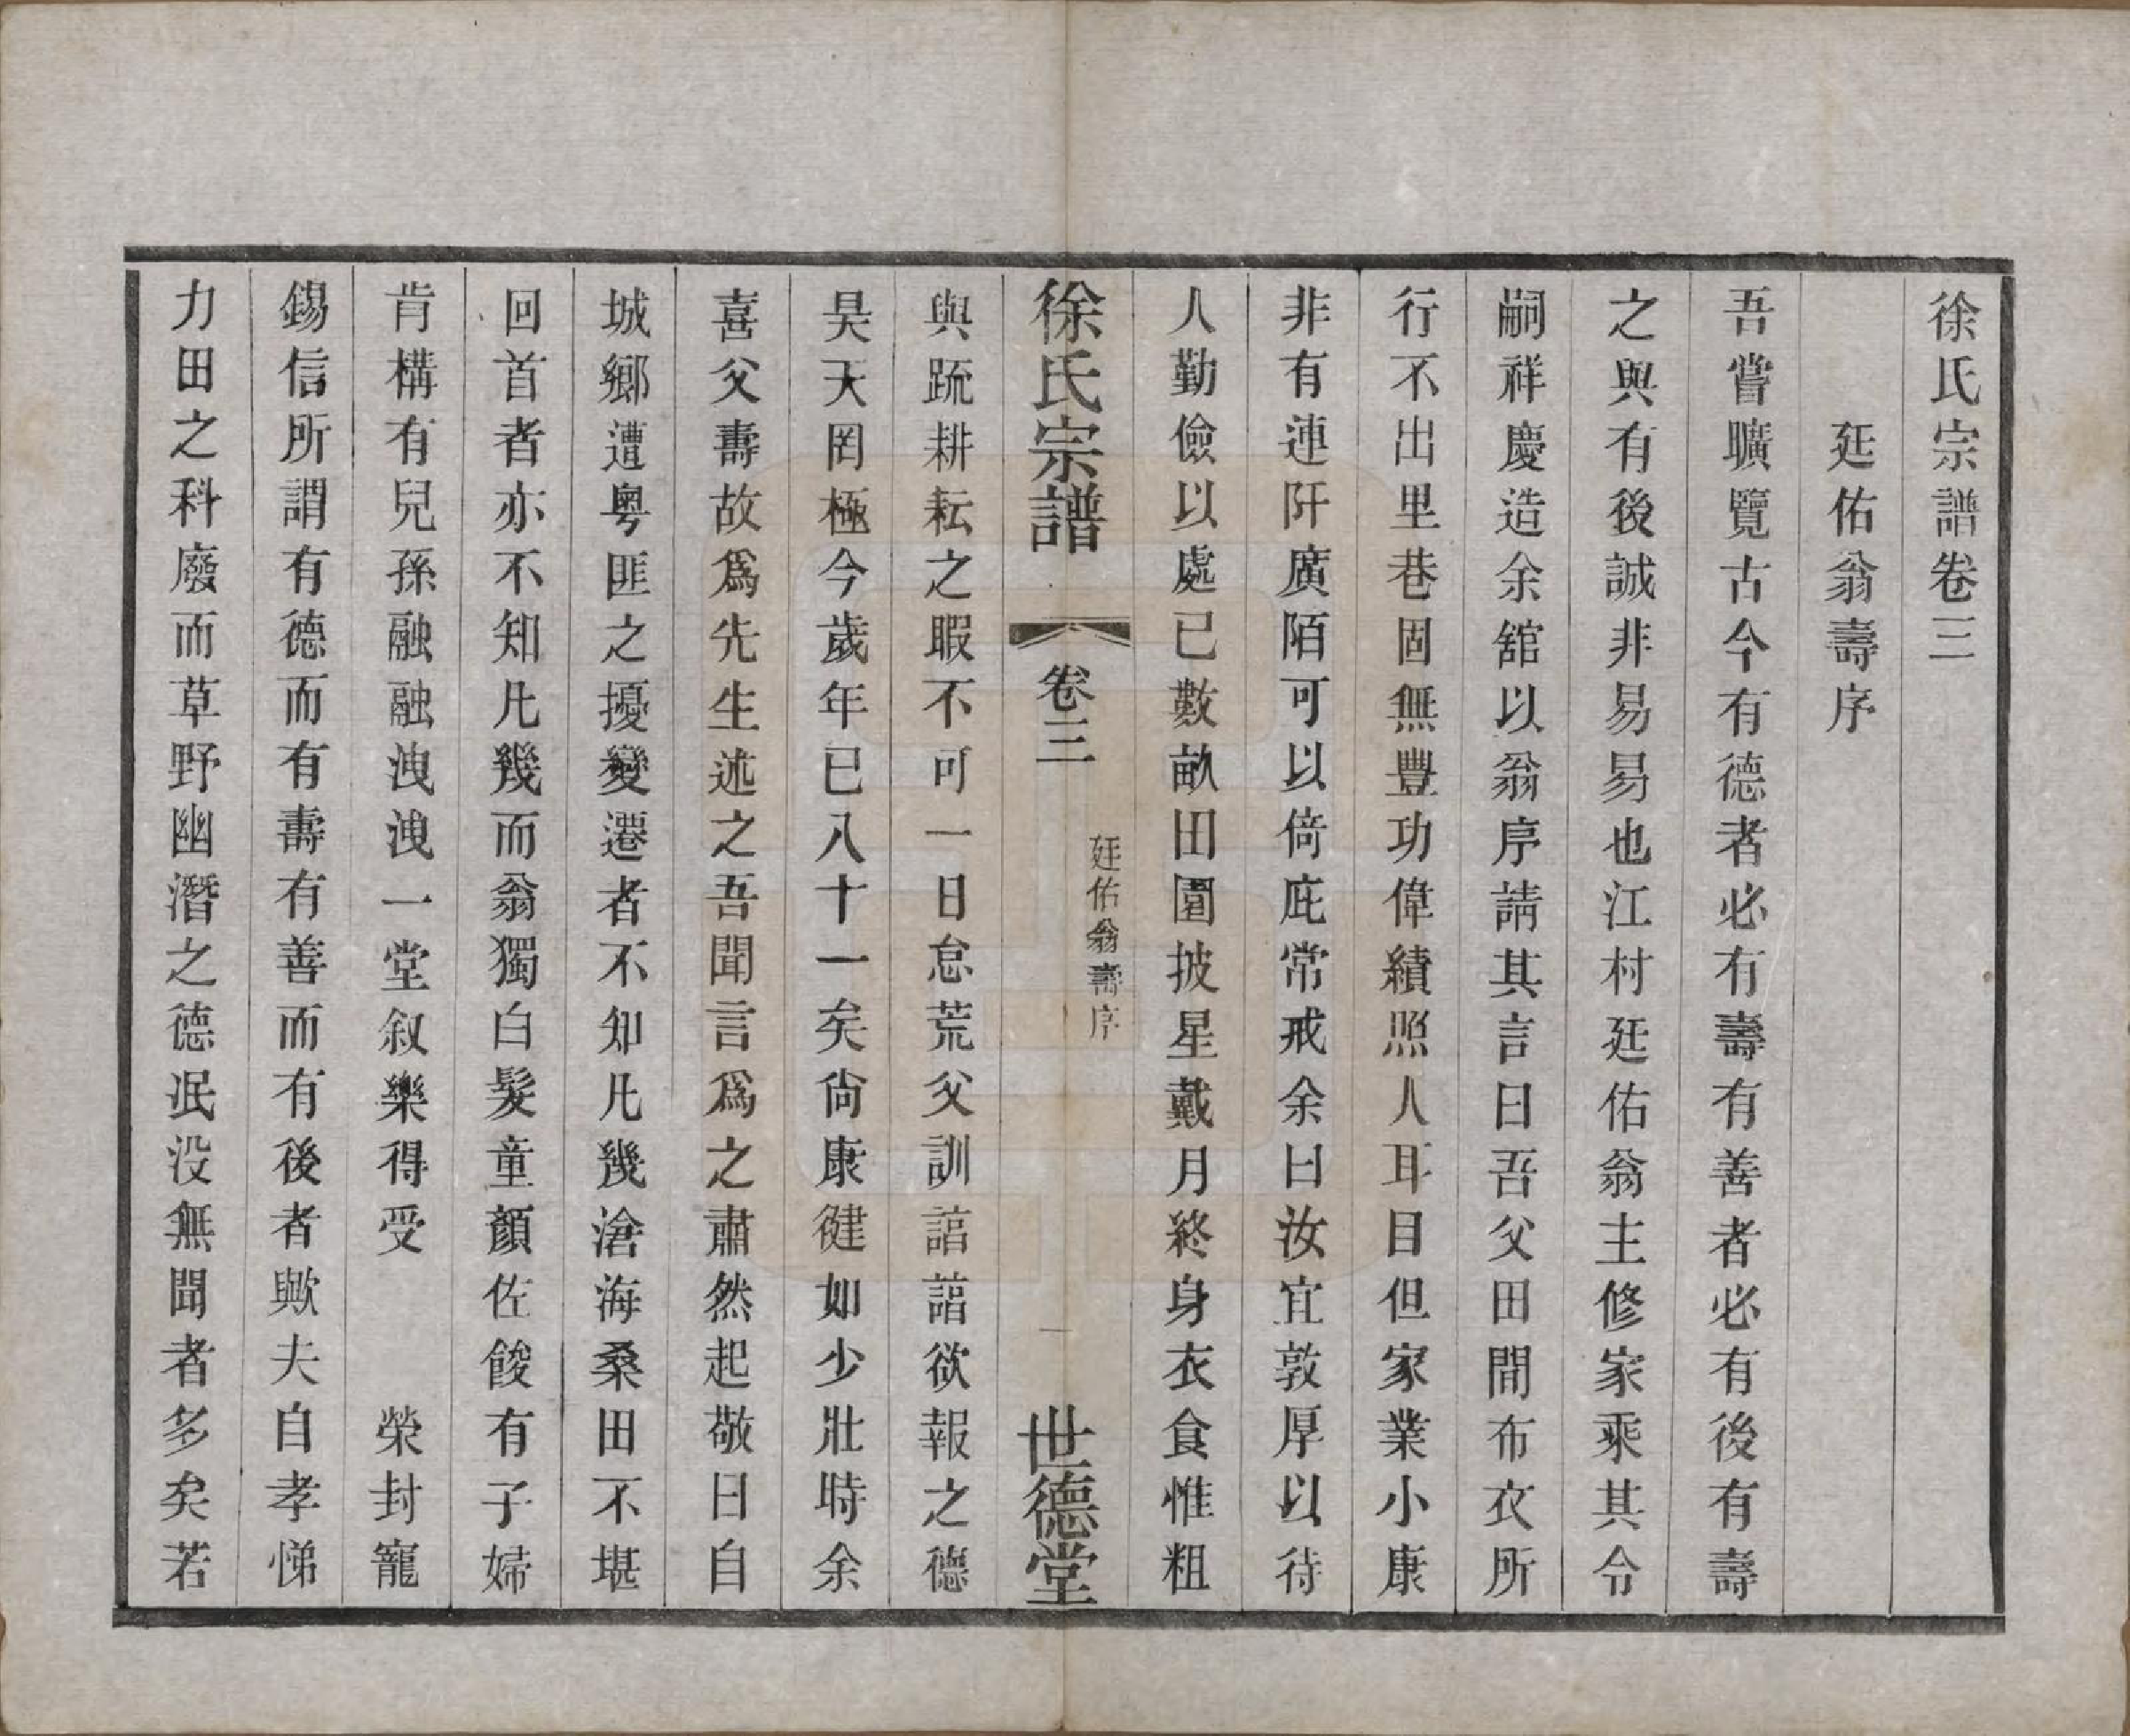 徐氏宗譜卷三
廷佑翁壽序
吾嘗曠覽古今有德者必有壽有善者必有後有壽
之與有後誠非易易也江村廷佑翁主修家乘其令
嗣祥慶造余舘以翁序請其言曰吾父田間布衣所
行不出里巷固無豐功偉績照人耳目但家業小康
非有連阡廣陌可以倚庇常戒余曰汝宜敦厚以待
人勤儉以處已數畝田園披星戴月終身衣食惟粗
徐氏宗譜
卷三
廷佑翁壽序
一
世德堂
與䟽耕耘之暇不可一日怠荒父訓諄諄欲報之德
昊天罔極今歲年已八十一矣尙康健如少壯時余
喜父壽故爲先生述之吾聞言爲之肅然起敬曰自
城鄉遭粤匪之擾變遷者不知凡幾滄海桑田不堪
回首者亦不知凡幾而翁獨白髮童顏佐餕有子婦
肯構有兒孫融融洩洩一堂叙樂得受　榮封寵
錫信所謂有德而有壽有善而有後者歟夫自孝悌
力田之科廢而草野幽潛之德泯没無聞者多矣若